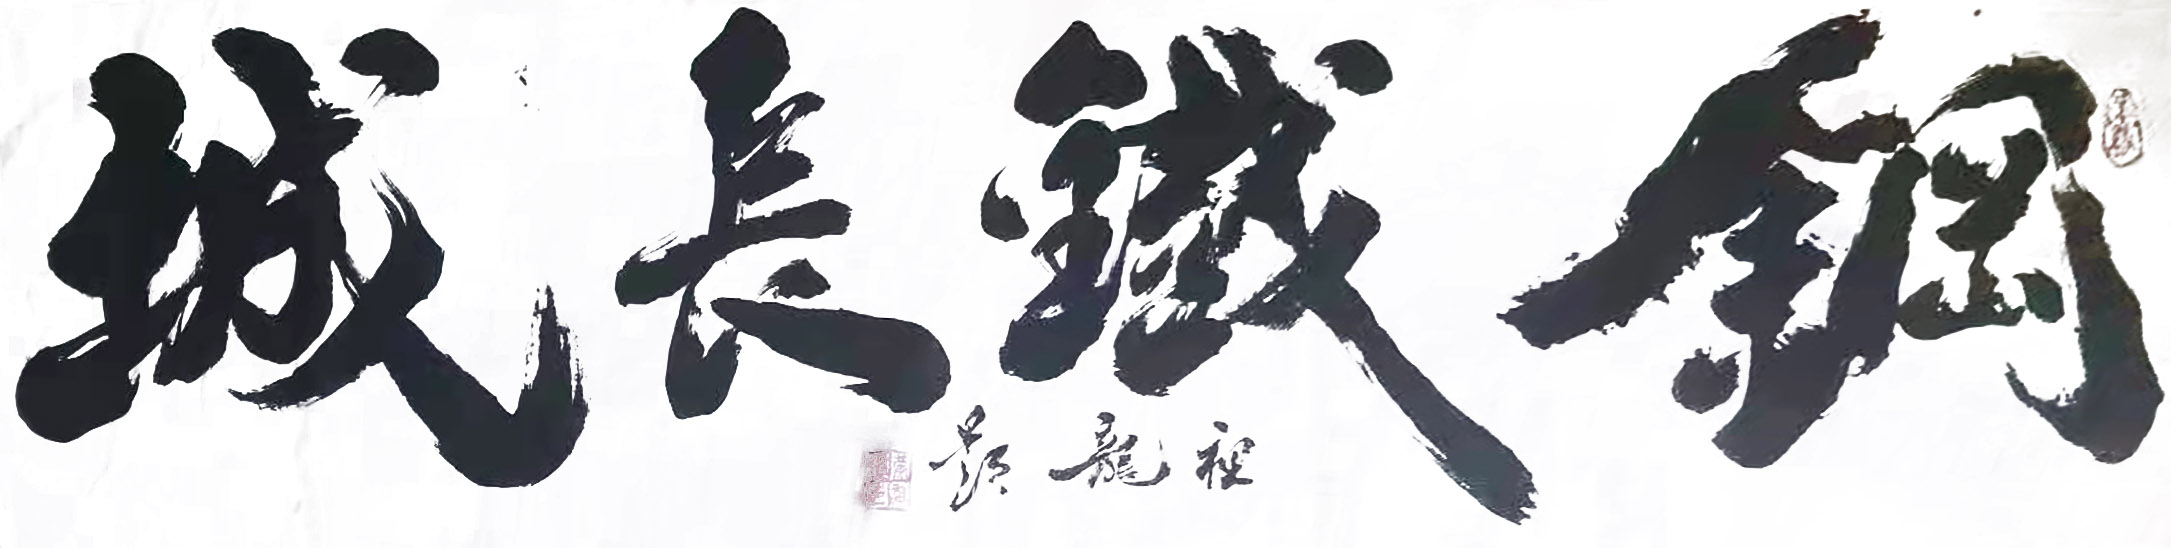 鋼鐵長城
龍題